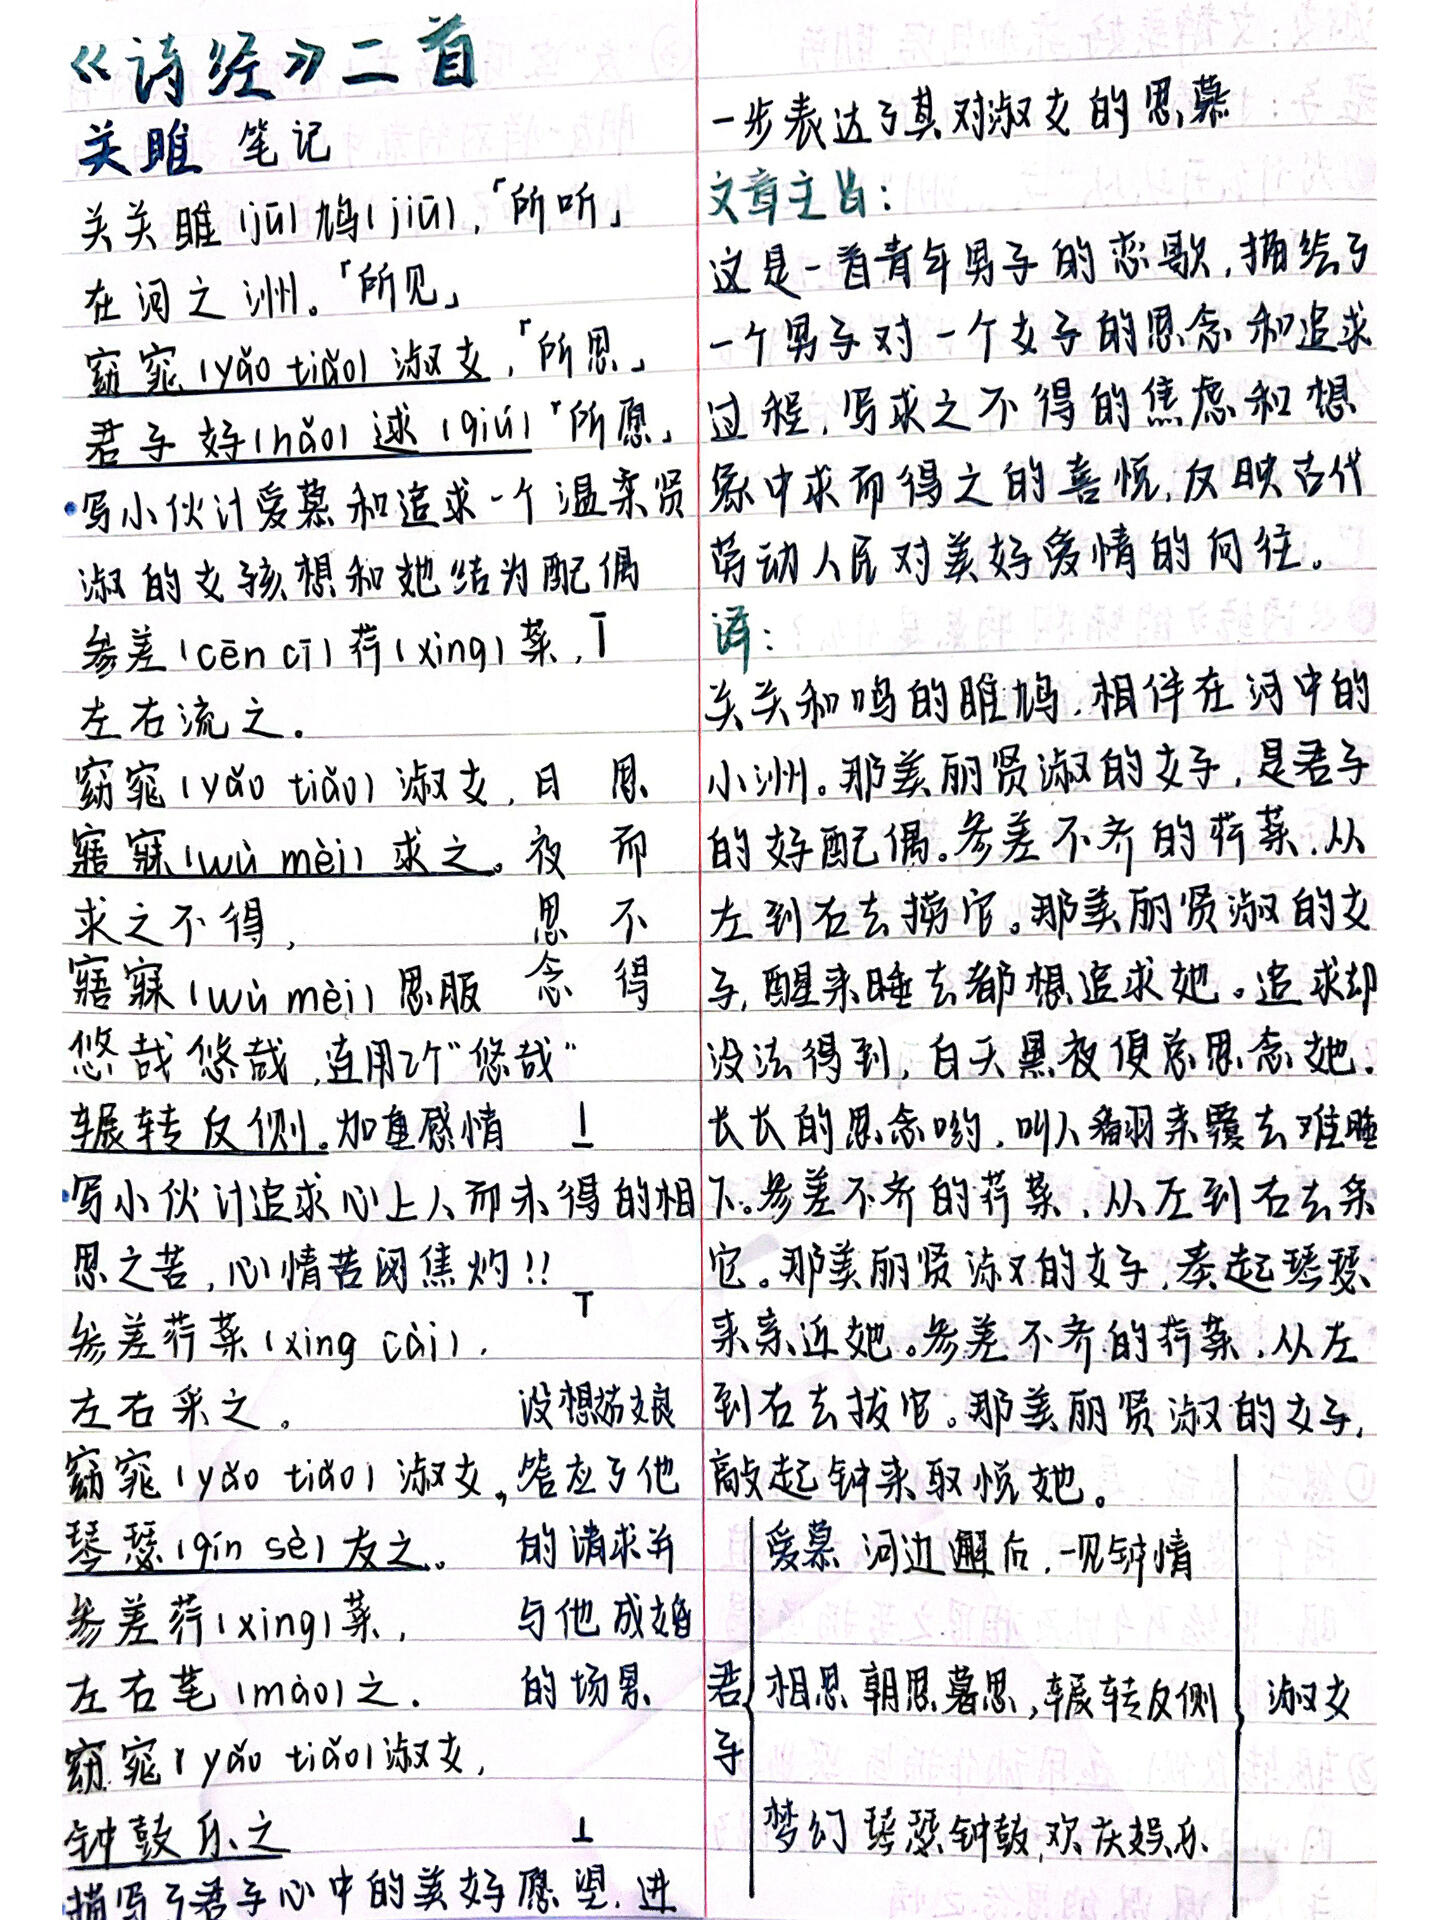 《诗经》二首
关雎 笔记
关关雎(jū)鸠(jiū),「所听」
在河之洲。「所见」
窈窕(yǎo tiǎo)淑女,「所思」
君子好(hǎo)逑(qiú)「所愿」
·写小伙计爱慕和追求一个温柔贤
淑的女孩想和她结为配偶
参差(cēn cī)荇(xìng)菜,
左右流之。
窈窕(yǎo tiǎo)淑女,日思
寤寐(wù mèi)求之。夜而
求之不得, 思不
寤寐(wù mèi)思服 念得
悠哉悠哉,连用2个"悠哉"
辗转反侧。加重感情
·写小伙计追求心上人而未得的相
思之苦,心情苦闷焦灼!!
参差荇菜(xìng cài),
左右采之。 没想姑娘
窈窕(yǎo tiǎo)淑女,答应了他
琴瑟(qín sè)友之。 的请求并
参差荇(xìng)菜, 与他成婚
左右芼(mào)之. 的场景
窈窕(yǎo tiǎo)淑女,
钟鼓乐之
描写了君子心中的美好愿望,进
一步表达了其对淑女的思慕
文章主旨:
这是一首青年男子的恋歌,描绘了
一个男子对一个女子的思念和追求
过程,写求之不得的焦虑和想
象中求而得之的喜悦,反映古代
劳动人民对美好爱情的向往。
译:
关关和鸣的雎鸠,相伴在河中的
小洲。那美丽贤淑的女子,是君子
的好配偶。参差不齐的荇菜,从
左到右去捞它。那美丽贤淑的女
子,醒来睡去都想追求她。追求却
没法得到,白天黑夜便总思念她.
长长的思念哟,叫人翻来覆去难睡
下。参差不齐的荇菜,从左到右去采
它。那美丽贤淑的女子,奏起琴瑟
来亲近她。参差不齐的荇菜,从左
到右去拔它。那美丽贤淑的女子,
敲起钟来取悦她。
君子
爱慕 河边邂后,一见钟情
相思 朝思暮思,辗转反侧
梦幻 琴瑟钟鼓,欢庆娱乐
淑女